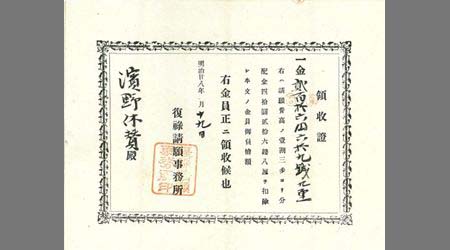 領收證
一金貳百拾六円六拾九錢九厘
右ハ請願舊高ノ壹割三歩ヨリ分
配金四拾圓貳拾六錢八厘ヲ扣除
シ本文ノ金員御負擔額
右金員正ニ領收候也
明治廿八年 月十九日
復祿請願事務所
濱野休賛殿